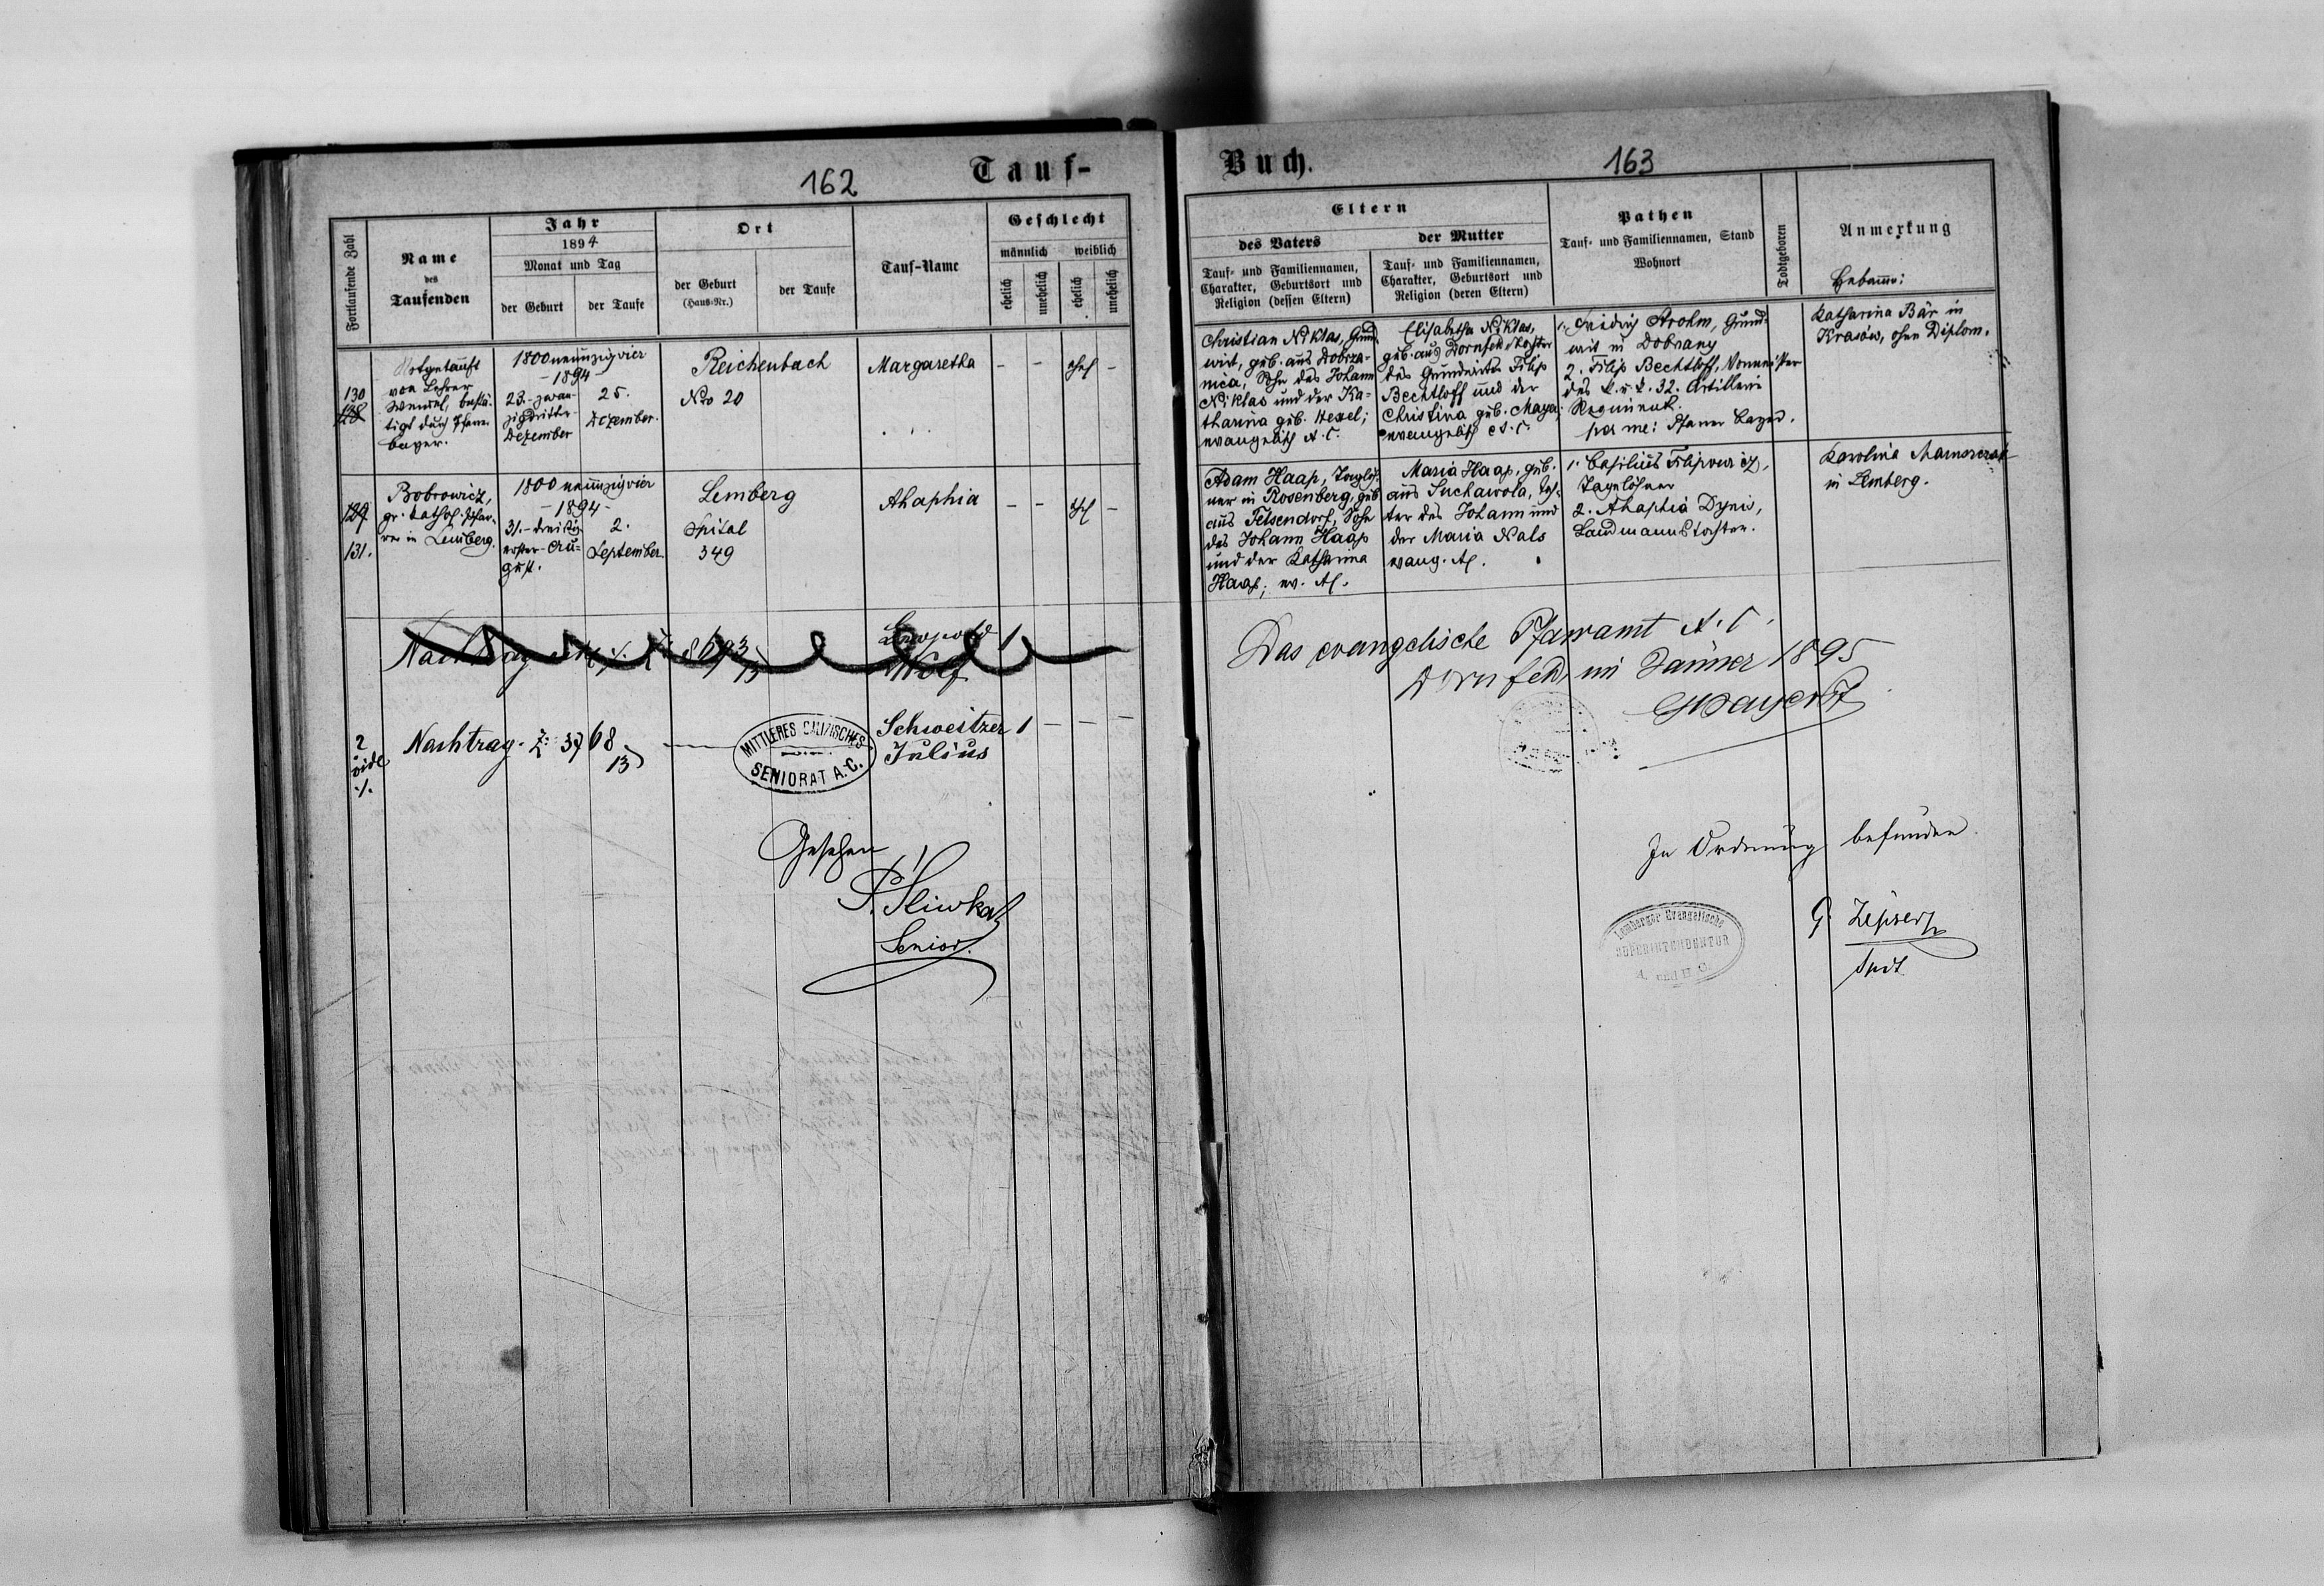 162
Tauf-
Fortlaufende Zahl
Name
des
Taufenden
Jahr
1894
Monat und Tag
der Geburt
der Taufe
Ort
der Geburt
(Haus-Nr.)
der Taufe
Tauf-Name
Geschlecht
männlich
weiblich
ehelich
unehelich
ehelich
unehelich
130
128
Notgetauft
von Lehrer
bestä-
tigt durch Pfarrer
Bayer.
1800 neunzigvier
-1894-
23.-zwan-
zigdritte-
Dezember
25.
Dezember.
Reichenbach
Nro 20
Margaretha
- - ehel -
129
131.
Bobrowicz,
gr. kathol. Pfar-
rer in Lemberg.
1800 neunzigvier
-1894-
31.-dreißig
erster-Au-
gust.
2.
September.
Lemberg
Spital
349
Ahaphia
- - ehel -
Nachtrag
Leopold 1
Wolf
2
vide
./.
Nachtrag. Z: 3768
13
Schweitzer 1 - - -
Julius
MITTLERES GALIZISCHES
SENIORAT A.C.
Gesehen
P. Śliwka
Senior.
Buch.
163
Eltern
des Vaters
Tauf- und Familiennamen,
Charakter, Geburtsort und
Religion (dessen Eltern)
der Mutter
Tauf- und Familiennamen,
Charakter, Geburtsort und
Religion (deren Eltern)
Pathen
Tauf- und Familiennamen, Stand
Wohnort
Todtgeboren
Anmerkung
Hebamme:
Christian Niklas, Grund-
wirt, geb. aus Dobrza-
nica, Sohn des Johann
Niklas und der Ka-
tharina geb. Hexel;
evangelisch A.C.
Elisabetha Niklas,
geb. aus Dornfeld, Tochter
des Grundwirts Filip
Bechtloff und der
Christina geb. Maya;
evangelisch A.C.
1. Fridrich Strohm, Grund-
wirt in Dobrany
2. Filip Bechtloff,
des k. u. k. 32. Artillerie
Regiment.
per me: Pfarrer Bayer.
Katharina Bär in
Krasów, ohne Diplom.
Adam Haap, Taglöh-
ner in Rosenberg, geb.
aus Felsendorf, Sohn
des Johann Haap
und der Katharina
Haap; ev. AC.
Maria Haap, geb.
aus Suchawola, Toch-
ter des Johann und
der Maria Nals
evang. AC.
1. Basilius Filipowicz,
Tagelöhner
2. Ahaphia Dynis,
Landmannstochter.
Karolina
in Lemberg.
Das evangelische Pfarramt A.C.
Dornfeld, im Jänner 1895
GBayer Pf
In Ordnung befunden
Lemberger Evangelische
SUPERINTENDENTUR
A. und H. C.
G. Zipser
Supt